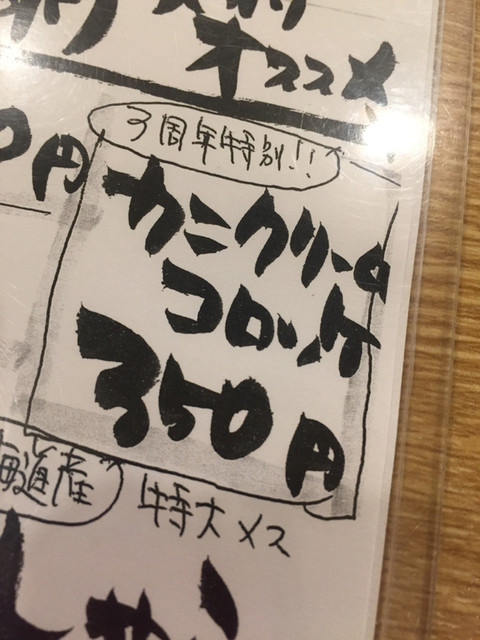 オススメ
円
3周年特別!!
カニクリーム
コロッケ
350円
海道産
特大メス